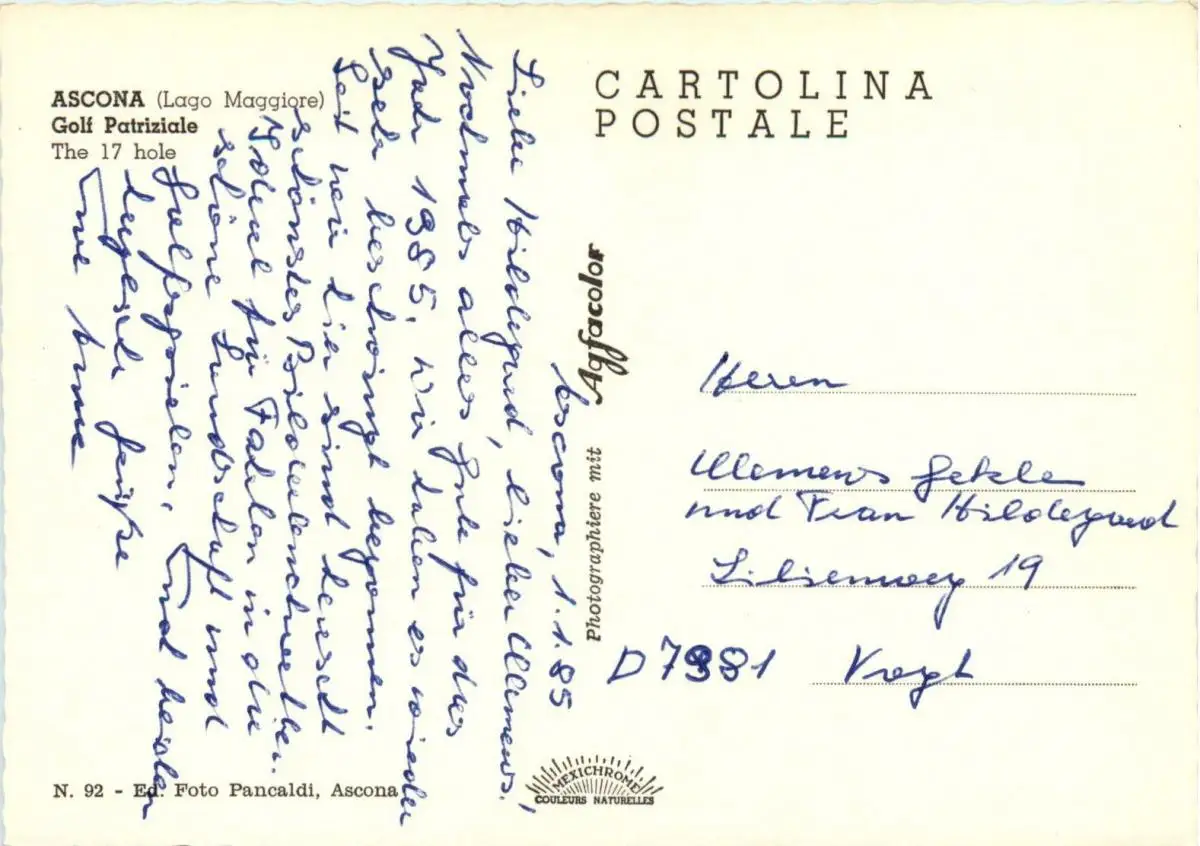 ASCONA (Lago Maggiore)
Golf Patriziale
The 17 hole
CARTOLINA
POSTALE
Ascona, 1.1.85
Liebe Hildegard, lieber Clemens!
Nochmals alles Gute für das
Jahr 1985, wir haben es wieder
sehr beschwingt begonnen.
Seit wir hier sind herrscht
schönstes Bilderbuchwetter.
Ideal für Fahrten in die
schöne Landschaft und
Golfspielen. Euch beiden
herzliche Grüße
Eure Anne
Photographiere mit Agfacolor
Herrn
Clemens
und Frau Hildegard
Lilienweg 19
D 7981 Vogt
N. 92 - Ed. Foto Pancaldi, Ascona
MEXICHROME
COULEURS NATURELLES